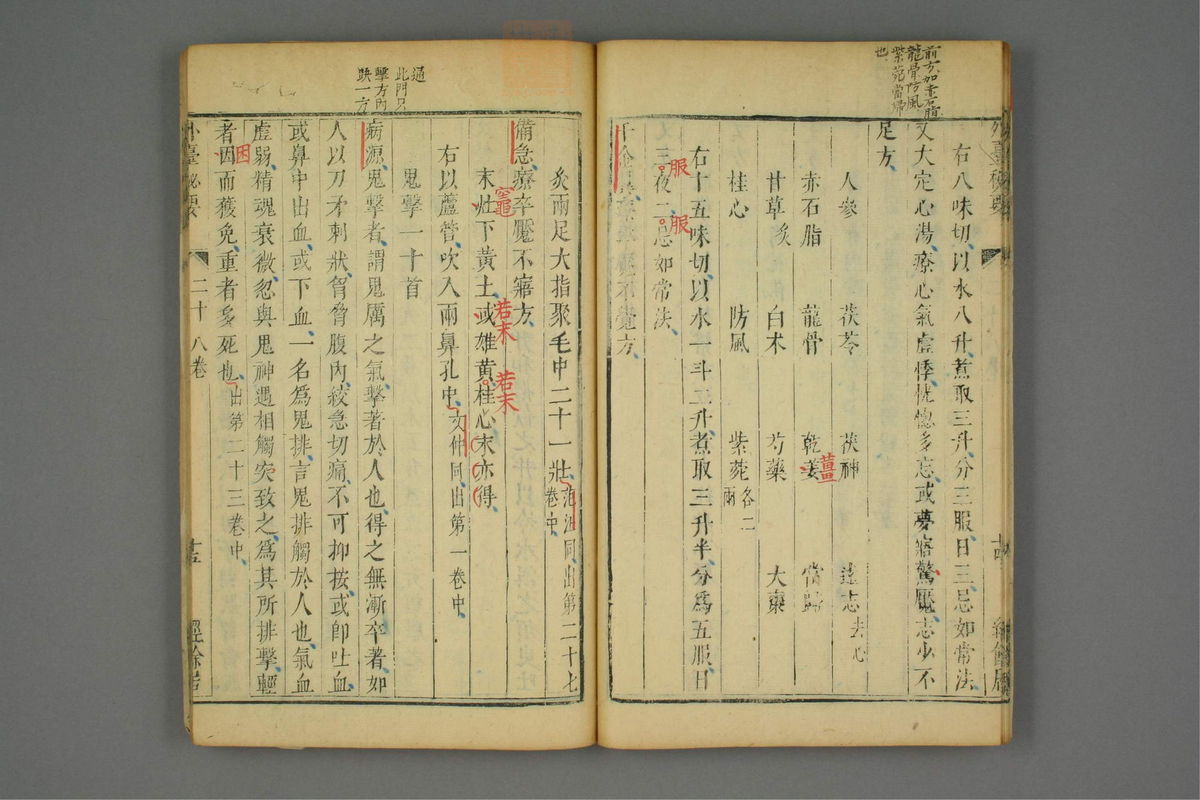 前方加赤石脂
龍骨防風
紫菀當歸
也
外臺秘要
右八味切以水八升煮取三升分三服日三忌如常法
又大定心湯療心氣虛悸恍惚多忘或夢寤驚魘志少不
足方
人參 茯苓 茯神 遠志去心
赤石脂 龍骨 乾姜 當歸
薑
甘草炙 白术 芍藥 大棗
桂心 防風 紫菀各二兩
右十五味切以水一斗二升煮取三升半分為五服日
三夜二忌如常法
服 服
千金 不覺方
通
此門只
擊方內
缺一方
灸兩足大指聚毛中二十一壯范汪同出第二十七卷中
備急療卒魘不寤方
末灶下黃土或雄黃桂心末亦得
竈 若末 若末
右以蘆管吹入兩鼻孔中文仲同出第一卷中
鬼擊一十首
病源鬼擊者謂鬼厲之氣擊著於人也得之無漸卒著如
人以刀矛刺狀胷脅腹內絞急切痛不可抑按或卽吐血
或鼻中出血或下血一名為鬼排言鬼排觸於人也氣血
虛弱精魂衰微忽與鬼神遇相觸突致之為其所排擊輕
者因而獲免重者多死也出第二十三卷中
困
外臺秘要 二十八卷 十五 經餘居